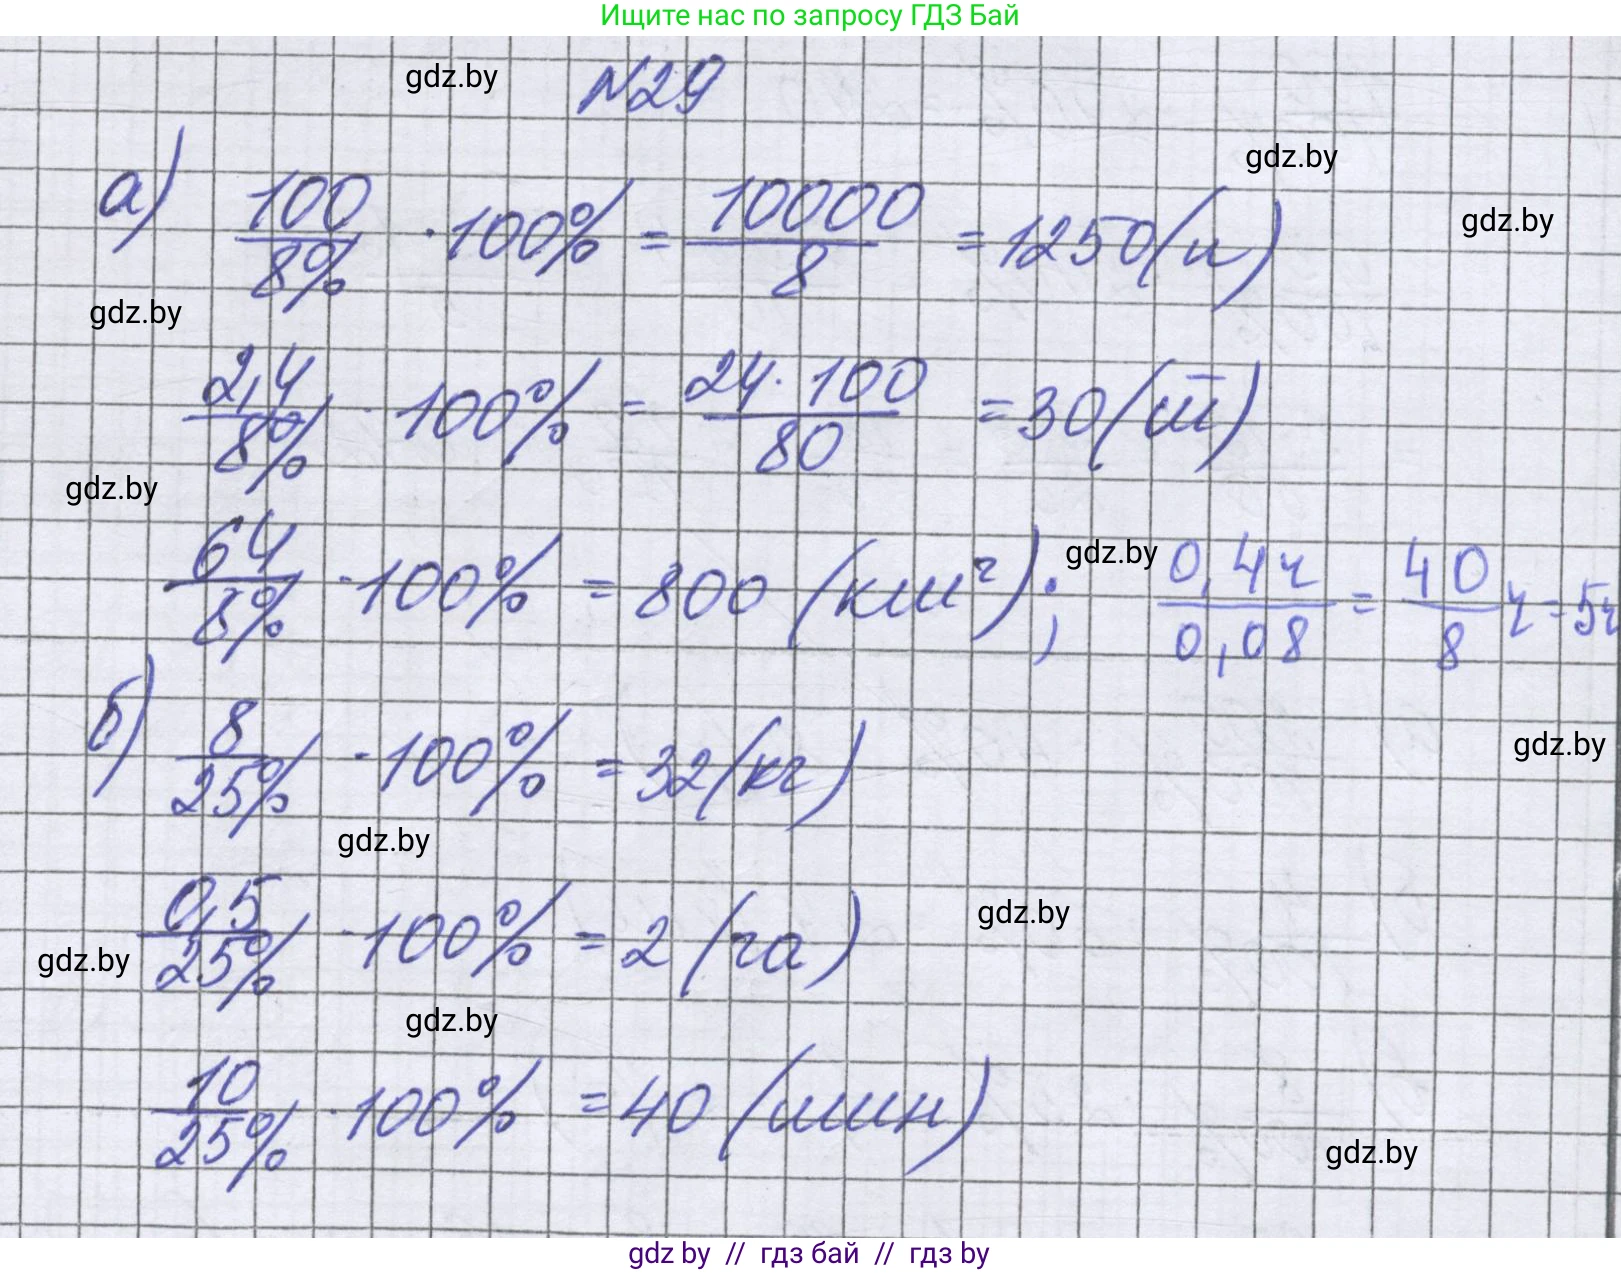 Ищите нас по запросу ГДЗ Бай
gdz.by
№29
gdz.by
а) 100/8% · 100% = 10000/8 = 1250 (и)
gdz.by
gdz.by
2,4/8% · 100% = 24 · 100/80 = 30 (т)
gdz.by
64/8% · 100% = 800 (км²); gdz.by 0,4ч/0,08 = 40/8 ч = 5ч
б) 8/25% · 100% = 32 (кг)
gdz.by
gdz.by
0,5/25% · 100% = 2 (га)
gdz.by
gdz.by
gdz.by
10/25% · 100% = 40 (мин)
gdz.by
gdz by // гдз бай // гдз by